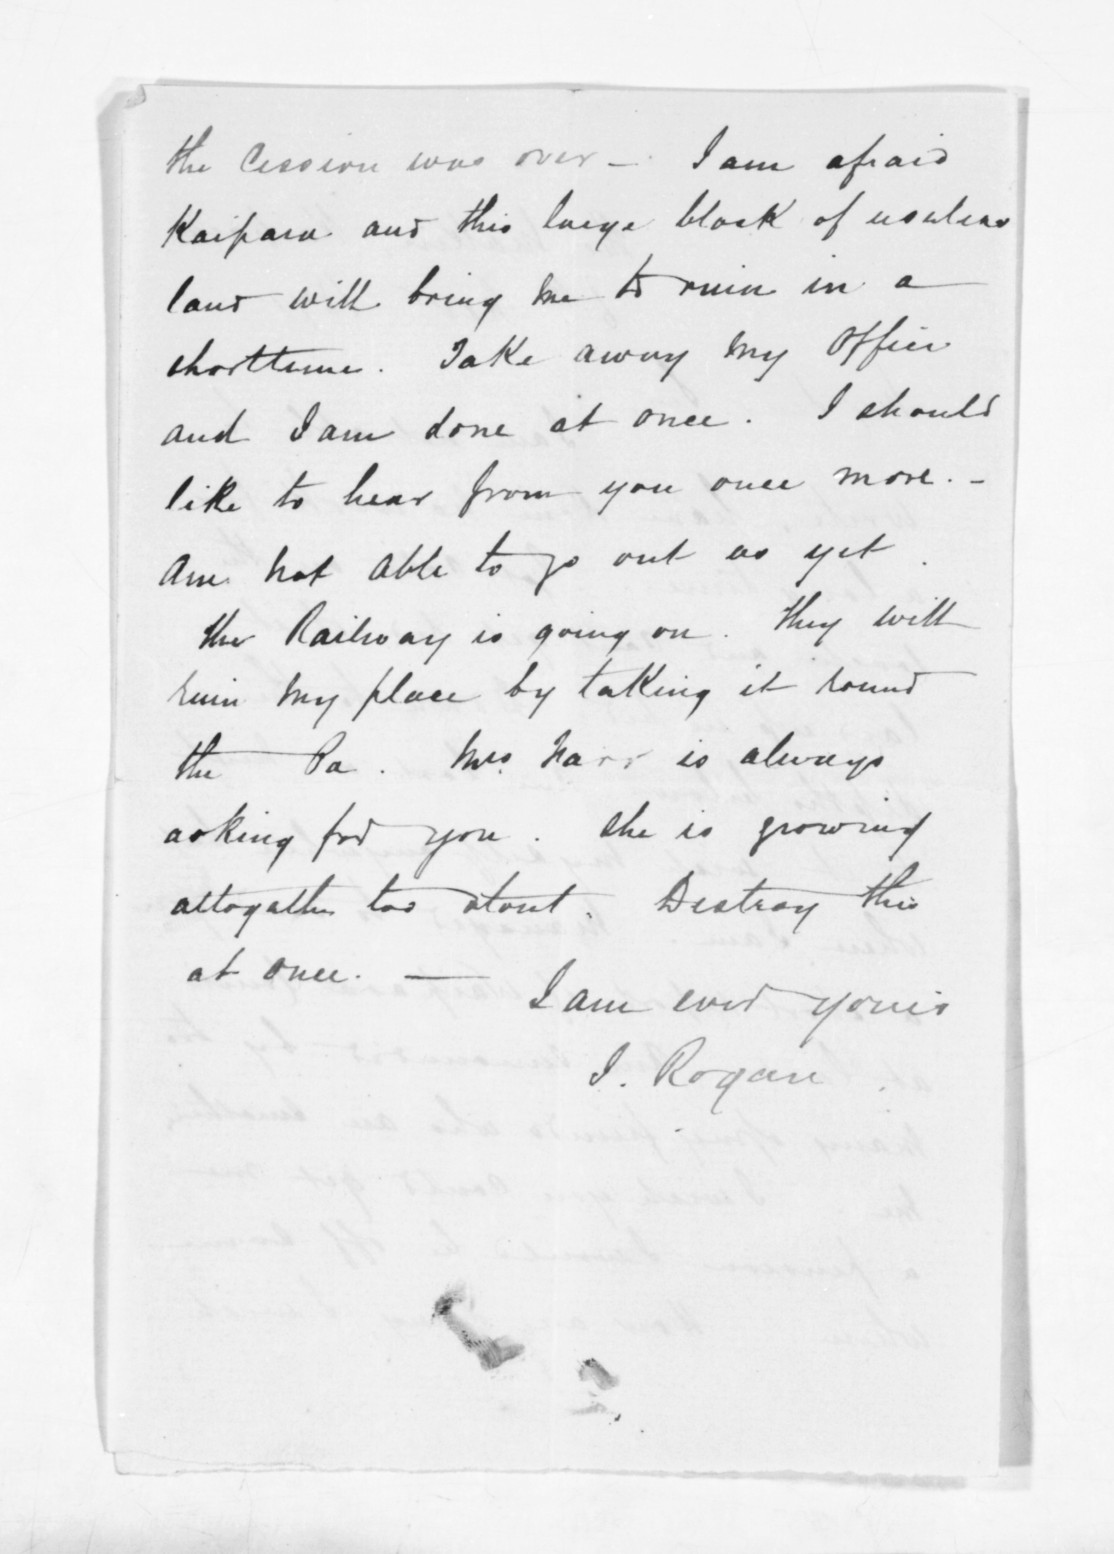 the Cession was over — I am afraid
Kaipara and this large block of useless
land will bring me to ruin in a
short time. Take away my Office
and I am done at once. I should
like to hear from you once more. —
Am not able to go out as yet.
The Railway is going on. They will
ruin my place by taking it round
the Pa. Mrs. Marr is always
asking for you. She is growing
altogether too stout. Destroy this
at once. —
I am ever yours
J. Rogan